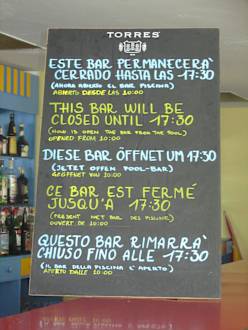 TORRES
ESTE BAR PERMANECERA'
CERRADO HASTA LAS 17:30
(AHORA ABIERTO EL BAR PISCINA)
ABIERTO DESDE LAS 10:00
THIS BAR WILL BE
CLOSED UNTIL 17:30
(NOW IS OPEN THE BAR FROM THE POOL)
OPENED FROM 10:00
DIESE BAR ÖFFNET UM 17:30
(JETZT OFFEN POOL-BAR)
GEÖFFNET VON 10:00
CE BAR EST FERMÉ
JUSQU'À 17:30
(PRESENT HET BAR DES PISCINE)
OUVERT DE 10:00
QUESTO BAR RIMARRA'
CHIUSO FINO ALLE 17:30
(IL BAR DELLA PISCINA È APERTO)
APERTO DALLE 10:00